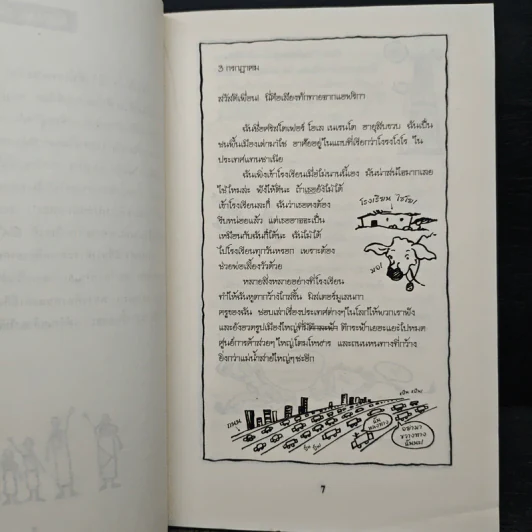 3 กรกฎาคม
สวัสดีเพื่อน! นี่คือเสียงทักทายจากแอฟริกา
ฉันชื่อคริสโตเฟอร์ โอเล เนเรนโต อายุสิบขวบ ฉันเป็น
ชนพื้นเมืองเผ่ามาไซ อาศัยอยู่ในแถบที่เรียกว่าโงรงโงโร ใน
ประเทศแทนซาเนีย
ฉันเพิ่งเข้าโรงเรียนเมื่อไม่นานนี้เอง ฉันน่าสนใจมากเลย
ใช่ไหมล่ะ ฟังให้ดีนะ ถ้าเธอยังไม่ได้
เข้าโรงเรียนละก็ ฉันว่าเธอคงต้อง
รีบหน่อยแล้ว แต่เธออาจจะเป็น
เหมือนกับฉันก็ได้นะ ฉันไม่ได้
ไปโรงเรียนทุกวันหรอก เพราะต้อง
ช่วยพ่อเลี้ยงวัวด้วย
หลายสิ่งหลายอย่างที่โรงเรียน
ทำให้ฉันหูตากว้างไกลขึ้น มิสเตอร์
ครูของฉัน ชอบเล่าเรื่องประเทศต่างๆ ในโลกให้พวกเราฟัง
และยังอวดรูปเมืองใหญ่ ตึกระฟ้าเยอะแยะไปหมด
ศูนย์การค้าสวยๆ ใหญ่โตมโหฬาร และถนนหนทางที่กว้าง
ยิ่งกว่าแม่น้ำสายใหญ่ๆ ซะอีก
โรงเรียน ไชโย!
มอ!
แปร๊น แปร๊น!
ปี๊น ปี๊น!
ฉัน
หลงทาง
อย่ามา
ขวางทาง
ฉันนะ!
7